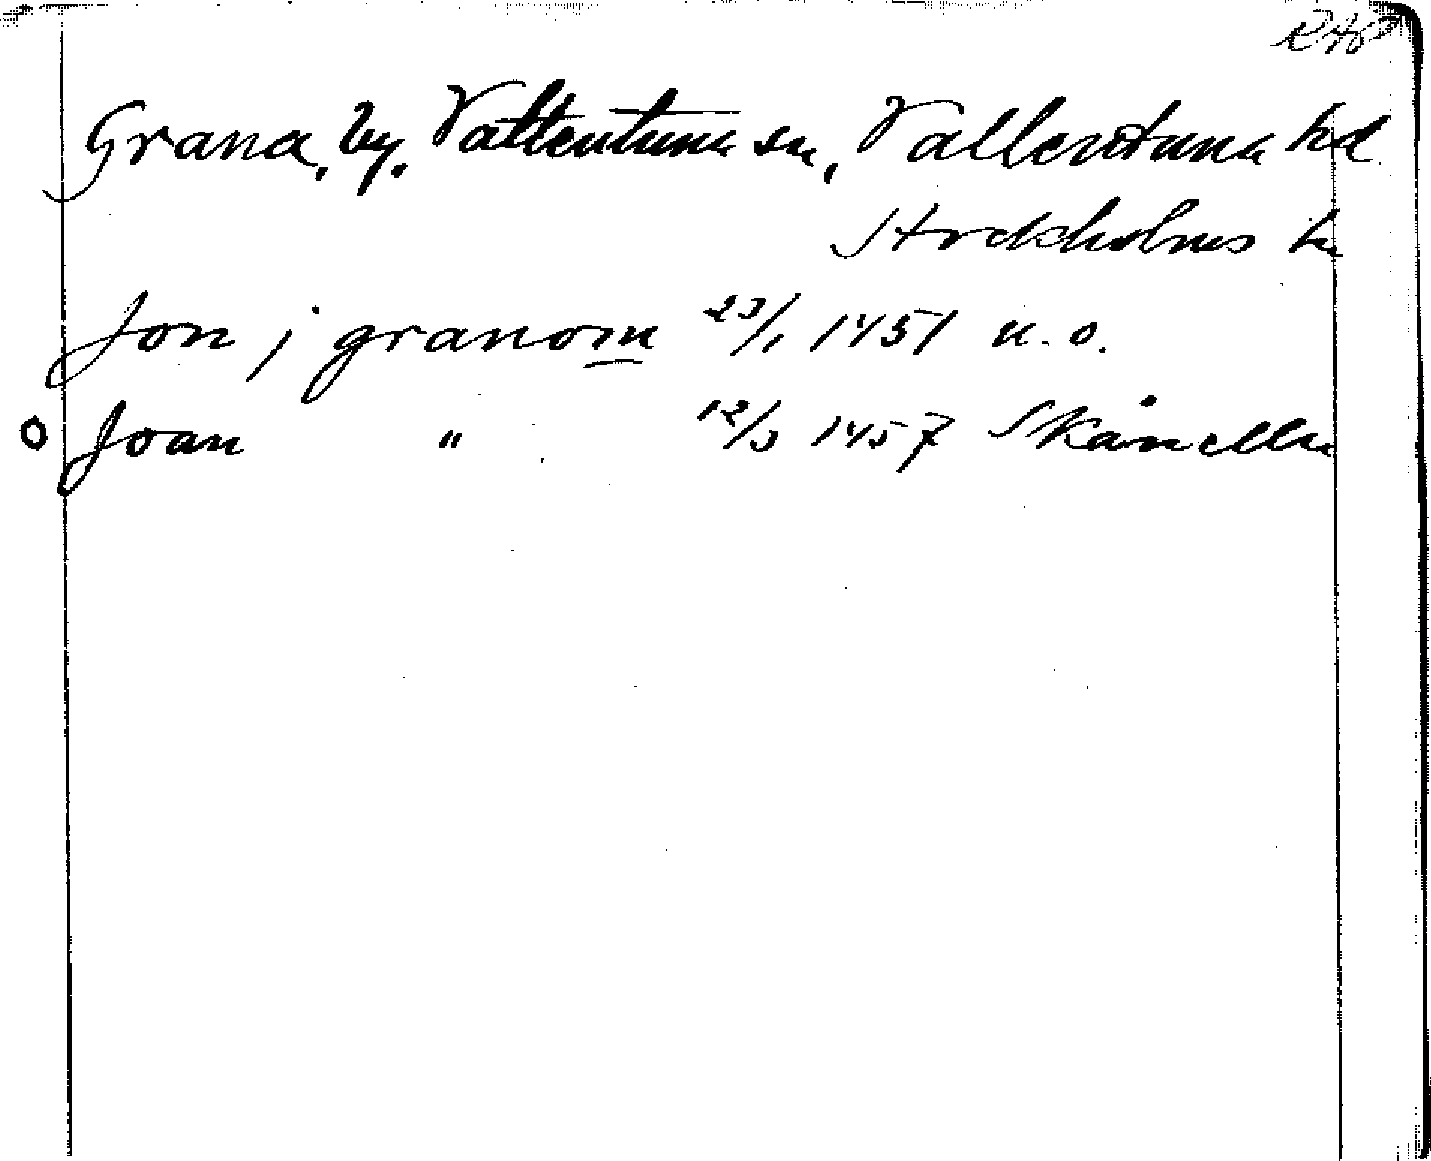 Grana, by. Vallentuna sn, Vallentuna hd
Stockholms l.
Jon j granom 23/1 1451 u.o.
o Joan " 12/3 1457 Skånella